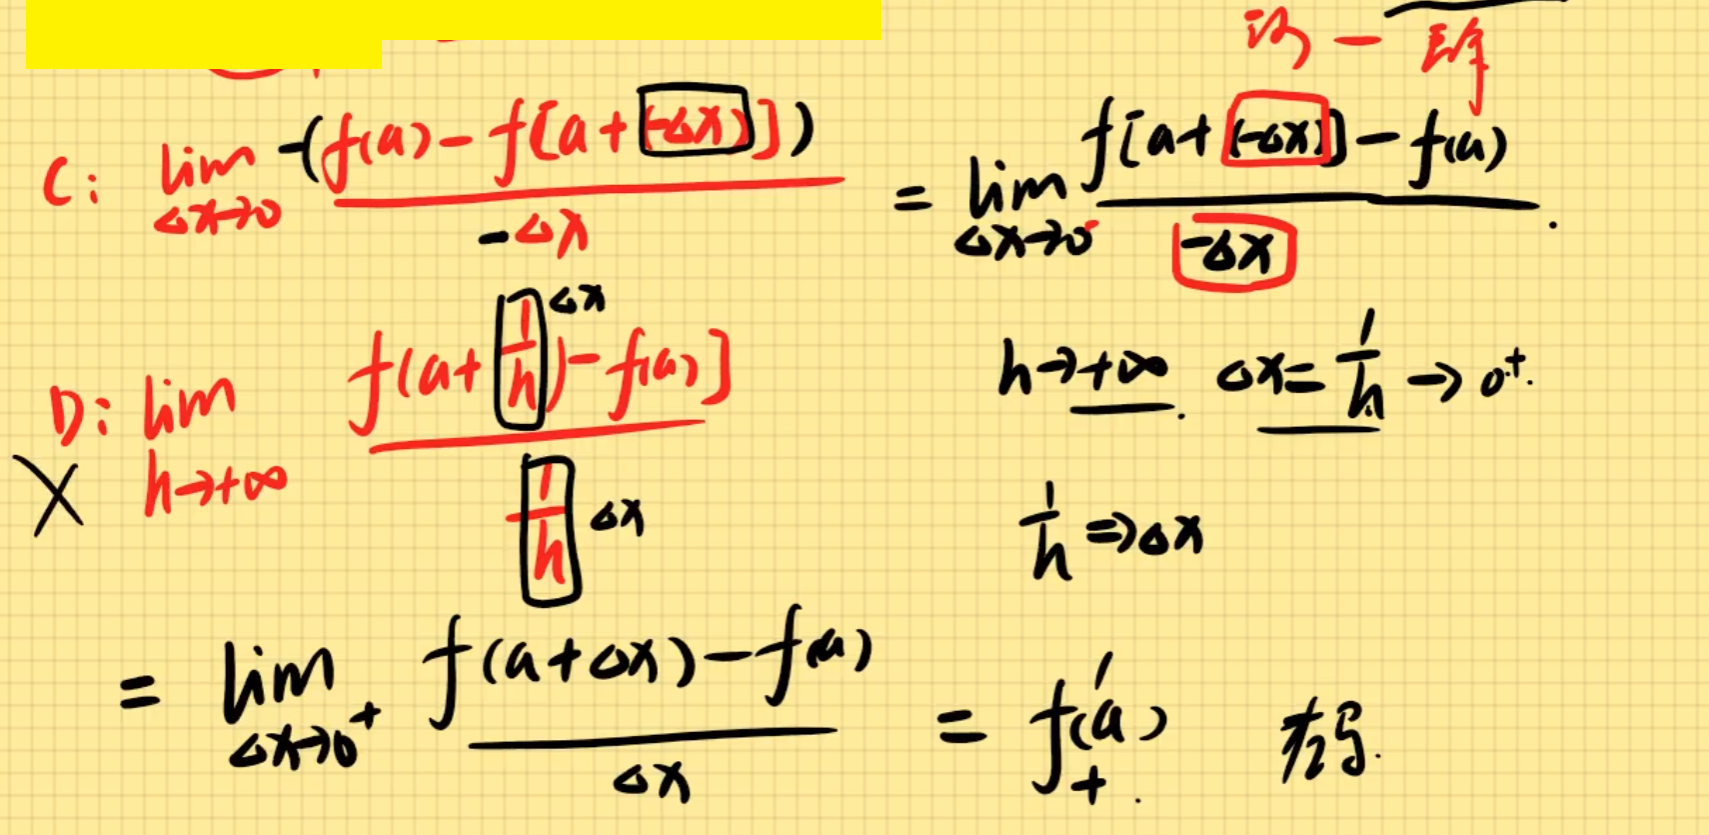 动 - 静
C: lim Δx→0 -(f(a) - f[a+(-Δx)]) / -Δx = lim Δx→0 f[a+(-Δx)] - f(a) / -Δx .
D: lim h→+∞ f(a+1/h) - f(a)] / 1/h Δx Δx h→+∞. Δx = 1/h → 0⁺.
X
1/h ⇒ Δx
= lim Δx→0⁺ f(a+Δx) - f(a) / Δx = f'₊(a).